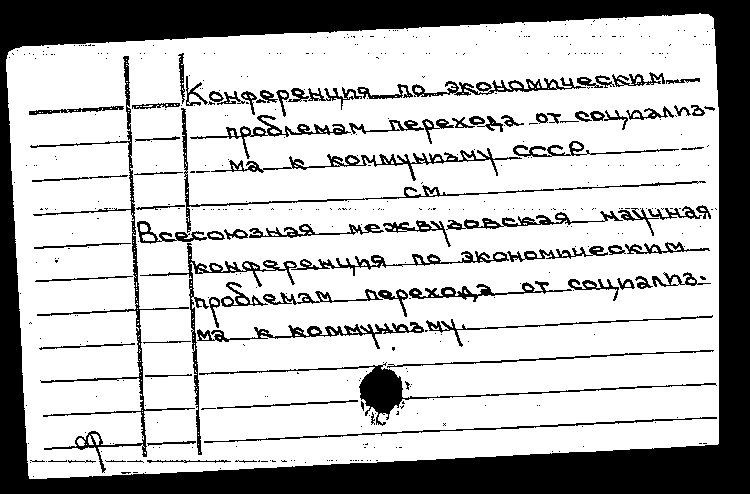 Конференция по экономическим
проблемам перехода от социализ-
ма к коммунизму СССР.
см.
Всесоюзная межвузовская научная
конференция по экономическим
проблемам перехода от социализ-
ма к коммунизму.